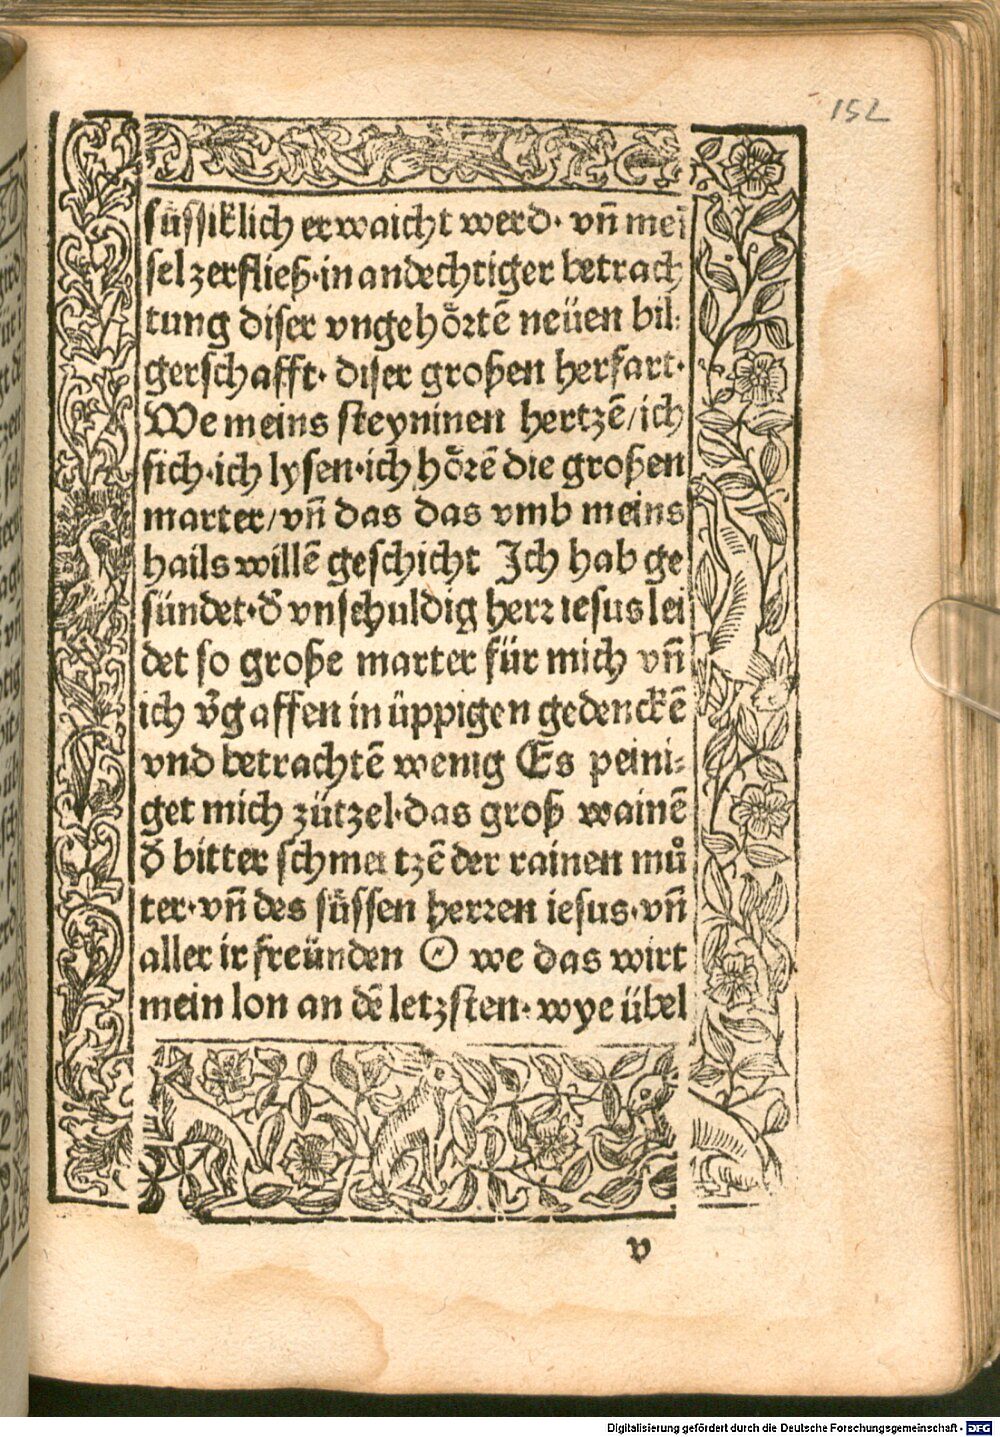 152
süssiklich erwaicht werd· vñ mei
sel zerfließ·in andechtiger betrach
tung diser vngehörtē neüen bil⸗
gerschafft· diser großen herfart·
We meins steyninen hertzē/ich
sich·ich lysen·ich hörē die großen
marter/vñ das das vmb meins
hails willē geschicht Ich hab ge
sündet·d̄ vnschuldig herr iesus lei
det so große marter für mich vñ
ich v̄gaffen in üppigen gedenckē
vnd betrachtē wenig Es peini⸗
get mich zützel·das groß wainē
d̄ bitter schmertzē der rainen mů
ter·vñ des süssen herren iesus·vñ
aller ir freünden O we das wirt
mein lon an dē letzsten· wye übel
v
Digitalisierung gefördert durch die Deutsche Forschungsgemeinschaft - DFG